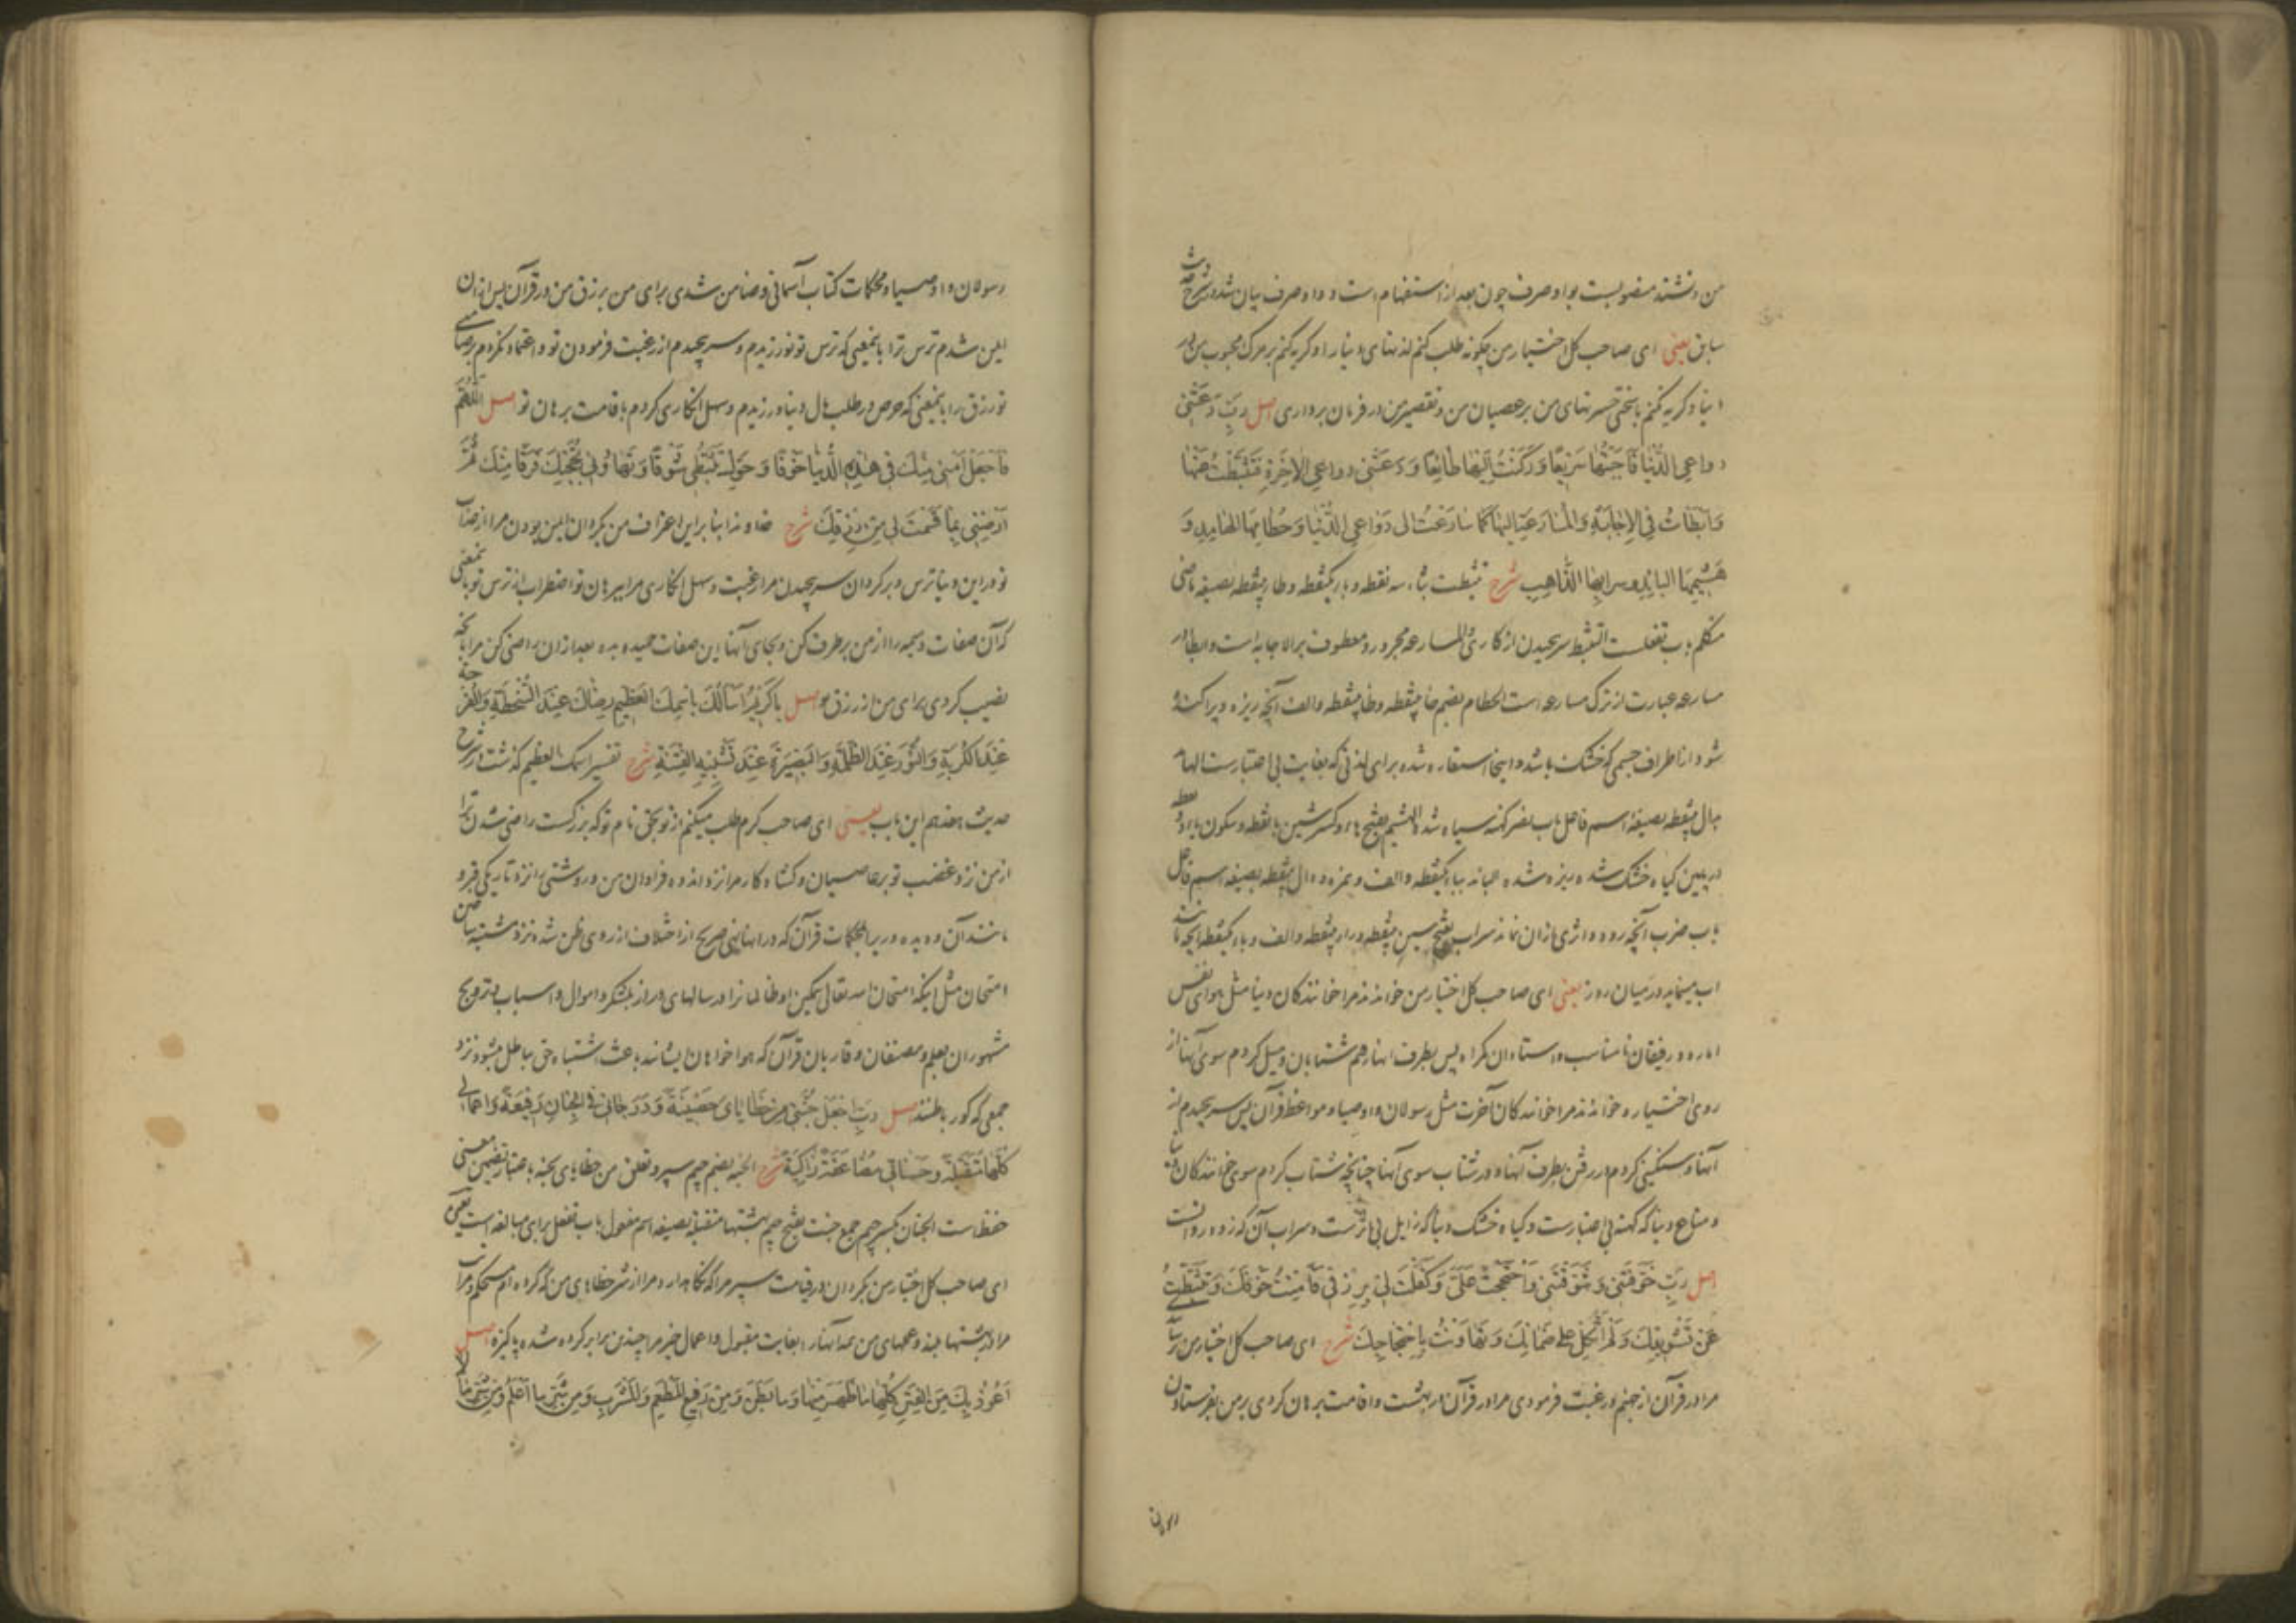 من دانسته منصوبست بواو صرف چون بعد از استفهام است و واو صرف بیان شد در شرح حدیث
سابق یعنی ای صاحب کل اختیار من چگونه طلب کنم لذتهای دنیا را و گریه کنم بر مرگ محبوب من در
دنیا و گریه نکنم با سختی حسرتهای من بر عصیان من و تقصیر من در فرمان برداری اصل رَبِّ دَعَتْنی
دواعی الدُّنْیا فَاَجَبْتُها سَریعًا وَ رَکَنْتُ اِلَیْها طائِعًا وَ دَعَتْنی دواعی الاخِرَةِ فَتَثَبَّطْتُ عَنْها
وَ اَبْطَأتُ فِی الاِجابَةِ وَ الْمُسارَعَةِ اِلَیْها کَما سارَعْتُ الی دَواعی الدُّنْیا وَ حُطامِهَا الهامِدِ وَ
هَشیمِهَا البائِدِ و سرابِهَا الذّاهِبِ شرح تثبطت بثاء سه نقطه و باء یکنقطه و طاء بینقطه بصیغه ماضی
متکلم باب تفعلست التثبط سر پیچیدن از کاری و المسارعه مجرور و معطوف بر الاجابه است و ابطاء در
مسارعه عبارت از ترک مسارعه است الحطام بضم حاء بینقطه و طاء بینقطه والف آنچه ریزه و پراکنده
شود از اطراف جسمی که خشک باشد و اینجا استعاره شده برای لذتی که بغایت بی اعتبارست الهامد
بدال بینقطه بصیغه اسم فاعل باب نصر کهنه سیاه شده الهشیم بفتح هاء و کسر شین با نقطه و سکون یاء دو نقطه
در پایین گیاه خشک شده ریزه شده البائد بباء یکنقطه والف و همزه و دال بینقطه بصیغه اسم فاعل
باب ضرب آنچه رود و اثری از آن نماند سراب بفتح سین بینقطه و راء بینقطه والف و باء یکنقطه آنچه مانند
اب مینماید در میان روز یعنی ای صاحب کل اختیار من خواندند مرا خوانندگان دنیا مثل هوای نفس
اماره و رفیقان نامناسب و استادان گمراه پس بطرف آنها رفتم شتابان و میل کردم سوی آنها از
روی اختیار و خواندند مرا خوانندگان آخرت مثل رسولان و اوصیا و مواعظ قرآن پس سر پیچیدم از
آنها و سنگینی کردم در رفتن بطرف آنها و در شتاب سوی آنها چنانچه شتاب کردم سوی خوانندگان دنیا
و متاع دنیا که کهنه بی اعتبارست و گیاه خشک دنیا که زایل بی اثرست و سراب آن که زود روانست
اصل رَبِّ خَوَّفْتَنی وَ شَوَّقْتَنی وَ احْتَجَجْتَ عَلَیَّ وَ کَفَلْتَ لی بِرِزْقی فَاَمِنْتُ خَوْفَکَ وَ تَثَبَّطْتُ
عَنْ تَشْویقِکَ وَ لَمْ اَتَّکِلْ عَلی ضَمانِکَ وَ تَهاوَنْتُ بِاحْتِجاجِکَ شرح ای صاحب کل اختیار من ترسانیدی
مرا در قرآن از جهنم و رغبت فرمودی مرا در قرآن در بهشت و اقامت برهان کردی بر من بفرستادن
رسولان
رسولان و اوصیا و محکمات کتاب آسمانی و ضامن شدی برای من برزق من در قرآن پس از آن
ایمن شدم ترس ترا باینمعنی که ترس تو نورزیدم و سر پیچیدم از رغبت فرمودن تو و اعتماد نکردم بر ضامنی
تو رزق را باینمعنی که حرص در طلب مال دنیا ورزیدم و سهل انگاری کردم باقامت برهان تو اصل اللّهُمَّ
فَاجْعَلْ اَمْنی مِنْکَ فی هذِهِ الدُّنْیا خَوْفًا وَ حَوِّلْ تَثَبُّطی شَوْقًا وَ تَهاوُنی بِحُجَّتِکَ فَرَقًا مِنْکَ ثُمَّ
رَضِّنی بِما قَسَمْتَ لی مِنْ رِزْقِکَ شرح خداوندا بنا بر این اعتراف من بگردان ایمن بودن مرا از عذاب
تو در این دنیا ترس و برگردان سر پیچیدن مرا رغبت و سهل انگاری مرا ببرهان تو اضطراب از ترس تو باینمعنی
که آن صفات ذمیمه را از من برطرف کن و بجای آنها این صفات حمیده بده بعد از آن راضی کن مرا بآنچه
نصیب کردی برای من از رزق خود اصل یا کَریمُ اَسْأَلُکَ بِاسْمِکَ الْعَظیمِ رِضاکَ عِنْدَ السَّخْطَةِ وَ الفُرْجَةَ
عِنْدَ الْکُرْبَةِ وَ النُّورَ عِنْدَ الظُّلْمَةِ وَ البَصیرَةَ عِنْدَ تَشْبیهِ الفِتْنَةِ شرح تفسیر اسمک العظیم گذشت در شرح
حدیث هفدهم این باب یعنی ای صاحب کرم طلب میکنم از تو بحق نام تو که بزرگست راضی شدن ترا
از من نزد غضب تو بر عاصیان و گشاد کار مرا نزد اندوه فراوان من و روشنی را نزد تاریکی قبر و
مانند آن و دیده وری را بمحکمات قرآن که در آنها نهی صریح از اختلاف از روی ظن شده نزد مشتبه ساختن
امتحان مثل اینکه امتحان الله تعالی بتمکین او ظالمانرا در سالهای دراز بلشکر و اموال و اسباب و ترویج
مشهوران بعلم و مصنفان و قاریان قرآن که هوا خواهان ایشانند باعث اشتباه حق بباطل میشود نزد
جمعی که کور باطنند اصل رَبِّ اجْعَلْ جُنَّتی مِنْ خَطایایَ حَصینَةً وَ دَرَجاتی فِی الْجِنانِ رَفیعَةً وَ اَعْمالی
کُلَّها مُتَقَبَّلَةً وَ حَسَناتی مُضاعَفَةً زاکِیَةً شرح الجنه بضم جیم سپر و تعلق من خطایای بجنه باعتبار تضمین معنی
حفظ است الجنان بکسر جیم جمع جنت بفتح جیم بهشتها متقبله بصیغه اسم مفعول باب تفعل برای مبالغه است یعنی
ای صاحب کل اختیار من بگردان در قیامت سپر مرا که نگاهدارد مرا از شر خطاهای من که کرده ام مستحکم و مراتب
مرا در بهشتها بلند و عملهای من همه آنها را بغایت مقبول و اعمال خیر مرا چندین برابر کرده شده پاکیزه اصل
اَعُوذُ بِکَ مِنَ الْفِتَنِ کُلِّها ما ظَهَرَ مِنْها وَ ما بَطَنَ وَ مِنْ رَفیعِ الْمَطْعَمِ وَ الْمَشْرَبِ وَ مِنْ شَرِّ ما اَعْلَمُ وَ مِنْ شَرِّ ما لا